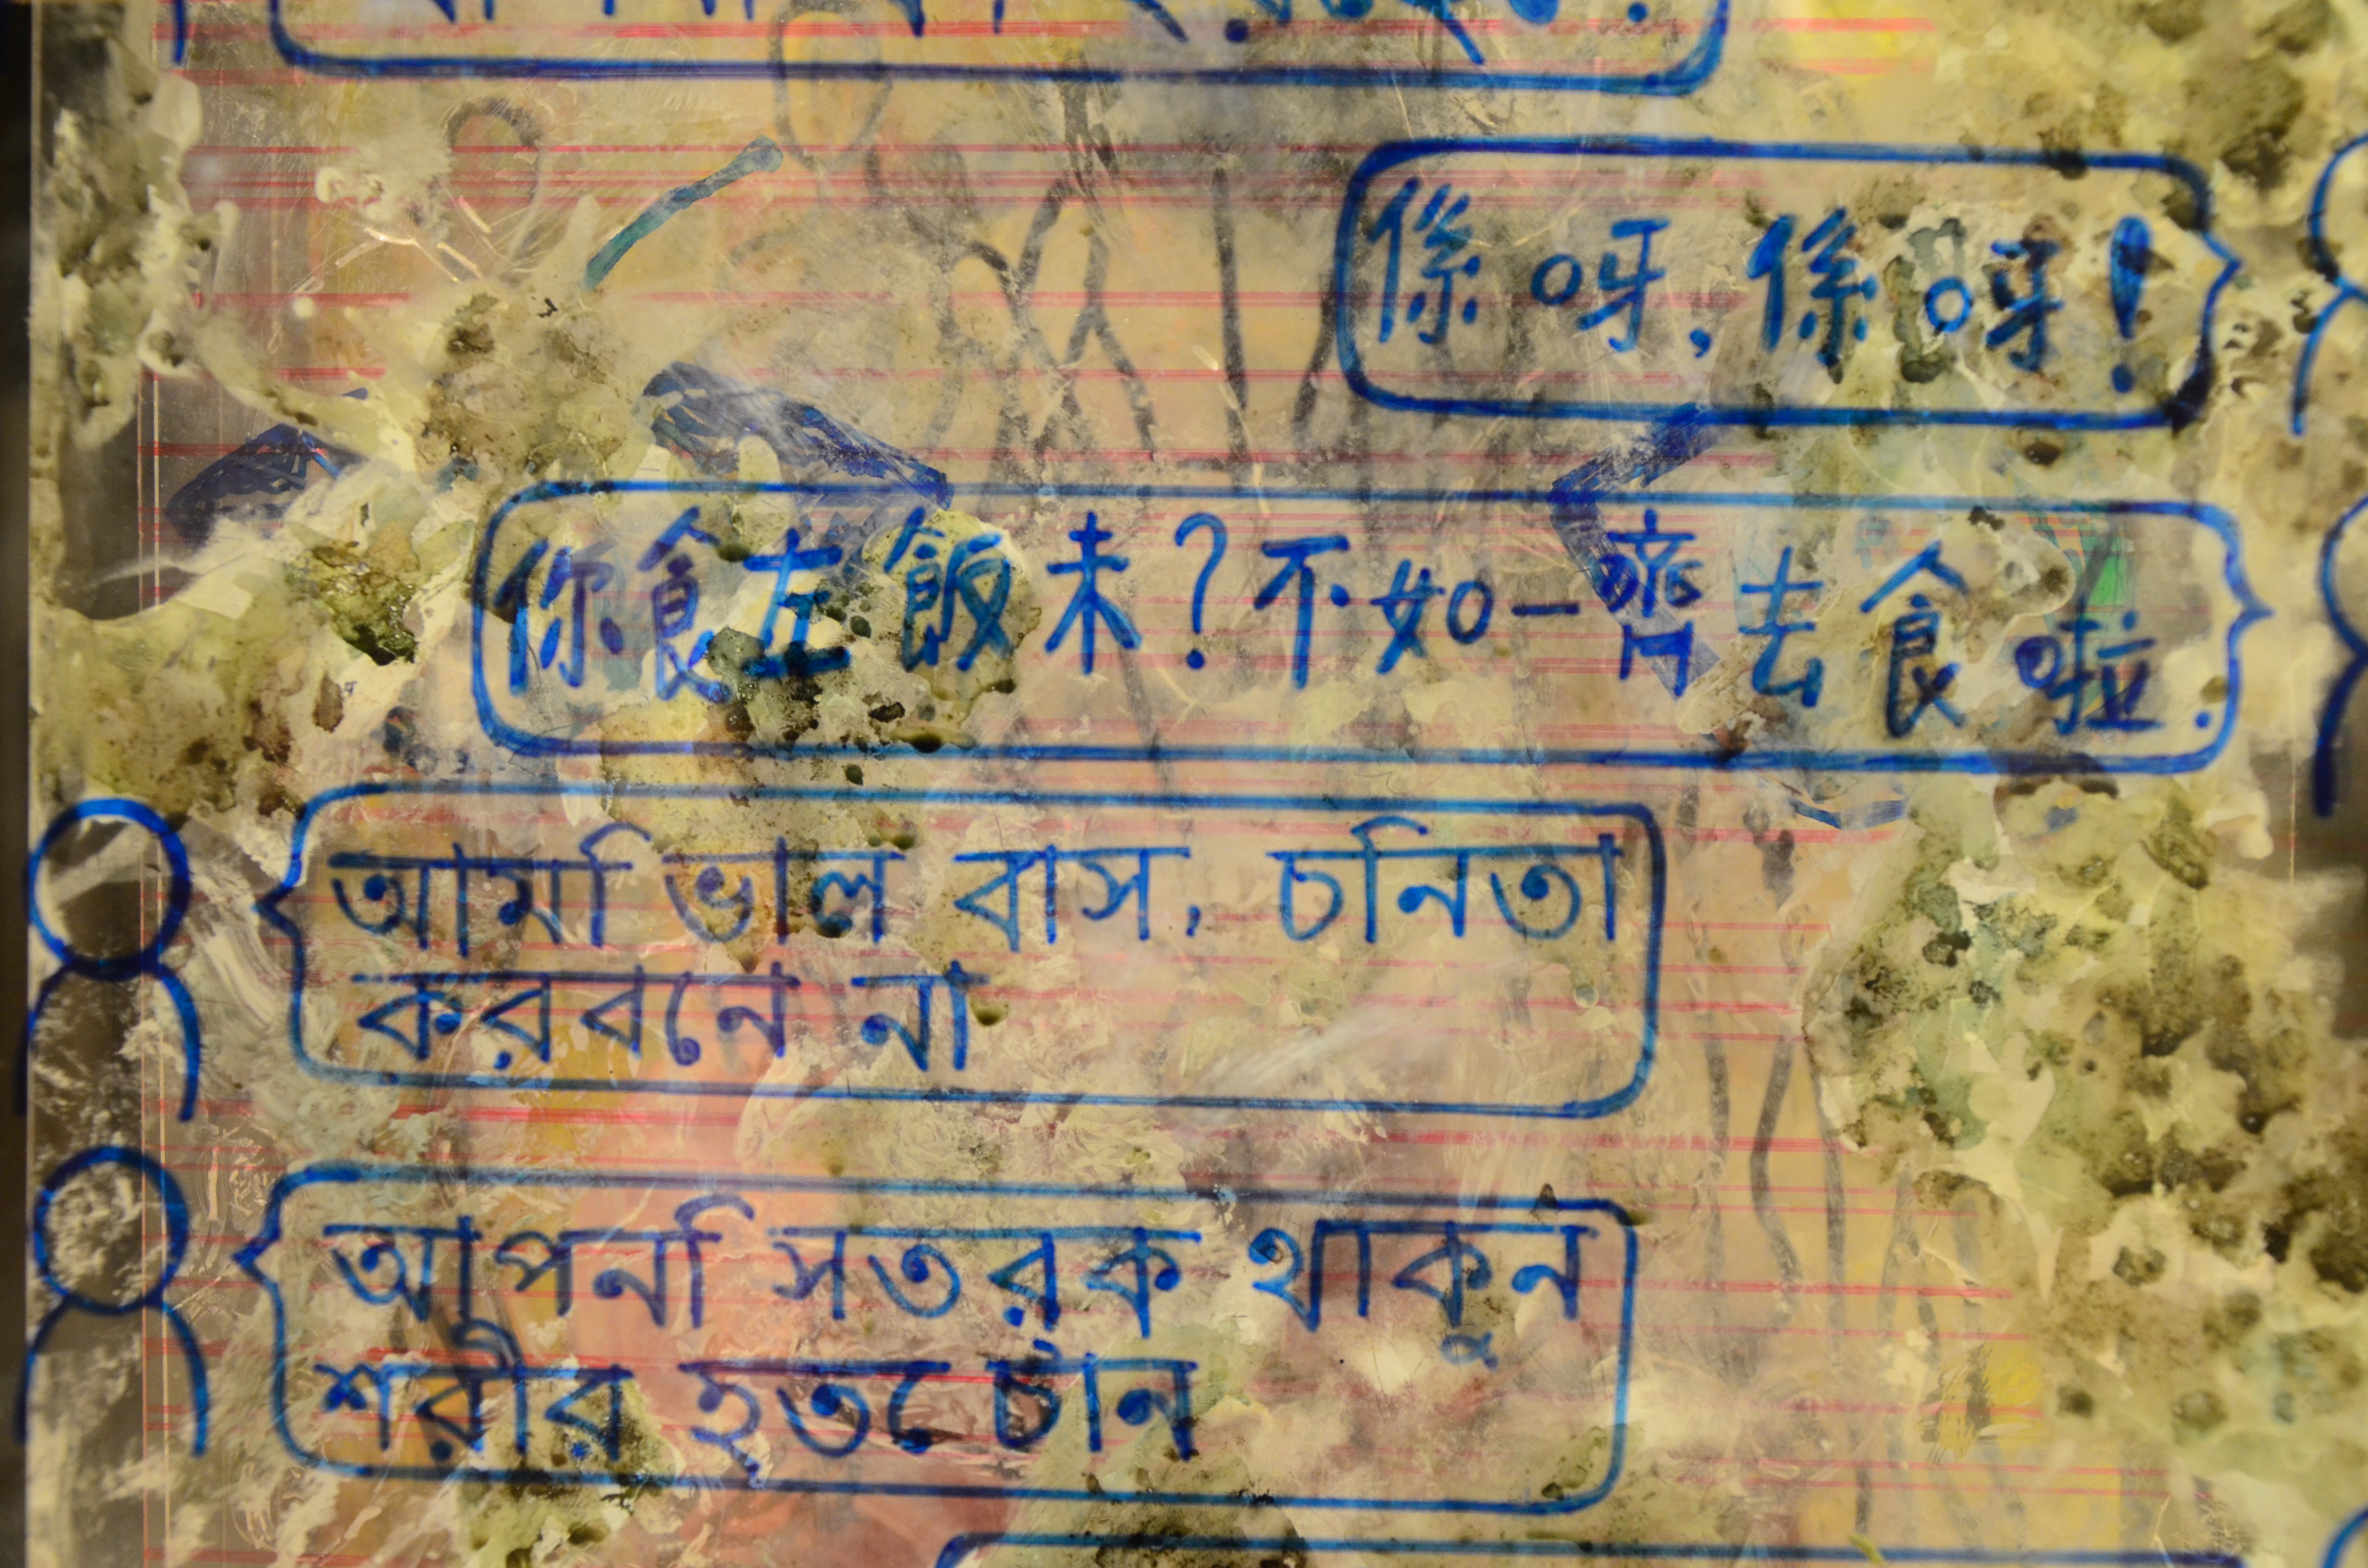 係呀,係呀!
你食左飯未?不如一齊去食啦.
আমি ভাল বাস, চনিতা
করবনে না
আপনি সতরক থাকুন
শরীর হতে চান